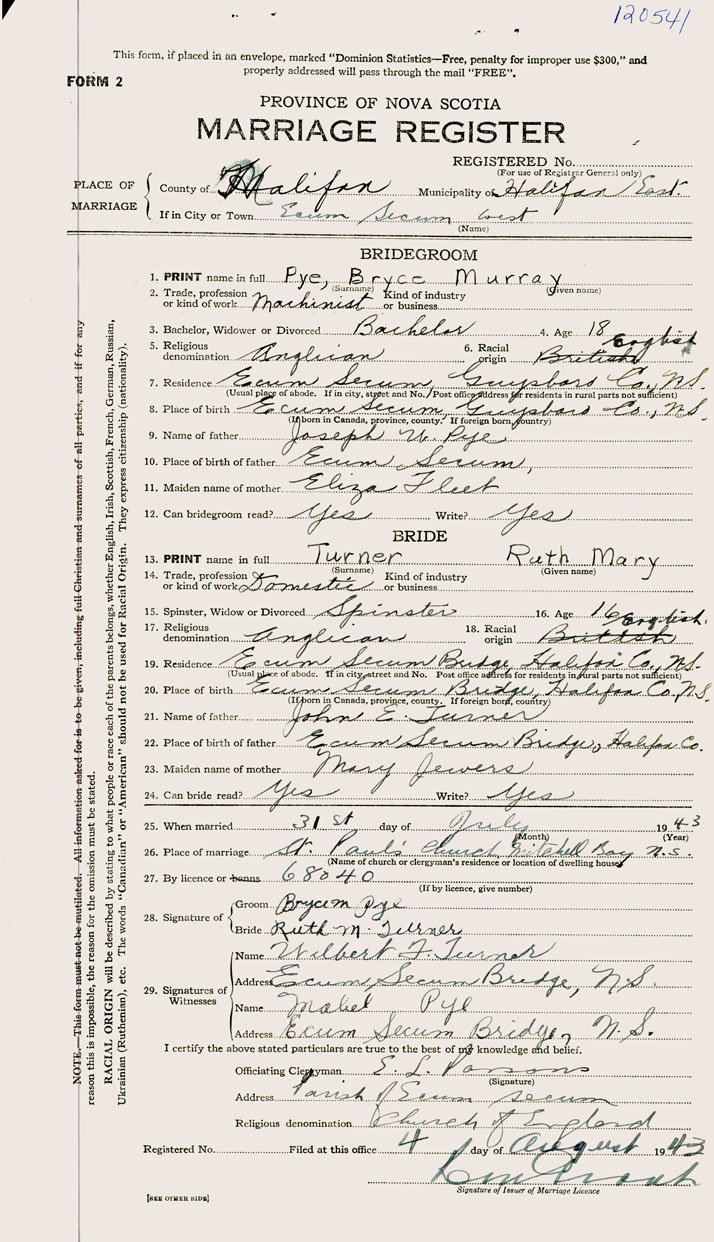 120541
This form, if placed in an envelope, marked "Dominion Statistics—Free, penalty for improper use $300," and
properly addressed will pass through the mail "FREE".
FORM 2
PROVINCE OF NOVA SCOTIA
MARRIAGE REGISTER
REGISTERED No.
(For use of Registrar General only)
PLACE OF MARRIAGE
County of Halifax Municipality of Halifax East.
If in City or Town Ecum Secum West
(Name)
BRIDEGROOM
1. PRINT name in full Pye, Bryce Murray
(Surname) (Given name)
2. Trade, profession or kind of work Machinist Kind of industry or business
3. Bachelor, Widower or Divorced Bachelor 4. Age 18
5. Religious denomination Anglican 6. Racial origin British English
7. Residence Ecum Secum, Guysboro Co., N.S.
(Usual place of abode. If in city, street and No. Post office address for residents in rural parts not sufficient)
8. Place of birth Ecum Secum, Guysboro Co., N.S.
(If born in Canada, province, county. If foreign born, country)
9. Name of father Joseph W. Pye
10. Place of birth of father Ecum Secum,
11. Maiden name of mother Eliza Fleet
12. Can bridegroom read? Yes Write? Yes
BRIDE
13. PRINT name in full Turner Ruth Mary
(Surname) (Given name)
14. Trade, profession or kind of work Domestic Kind of industry or business
15. Spinster, Widow or Divorced Spinster 16. Age 16
17. Religious denomination Anglican 18. Racial origin British English
19. Residence Ecum Secum Bridge, Halifax Co., N.S.
(Usual place of abode. If in city, street and No. Post office address for residents in rural parts not sufficient)
20. Place of birth Ecum Secum Bridge, Halifax Co. N.S.
(If born in Canada, province, county. If foreign born, country)
21. Name of father John E. Turner
22. Place of birth of father Ecum Secum Bridge, Halifax Co.
23. Maiden name of mother Mary Jewers
24. Can bride read? Yes Write? Yes
25. When married 31st day of July 1943
(Month) (Year)
26. Place of marriage St. Paul's Church Mitchell Bay N.S.
(Name of church or clergyman's residence or location of dwelling house)
27. By licence or banns 68040
(If by licence, give number)
28. Signature of
Groom Brycem Pye
Bride Ruth M. Turner
29. Signatures of Witnesses
Name Wilbert F. Turner
Address Ecum Secum Bridge, N.S.
Name Mabel Pye
Address Ecum Secum Bridge, N.S.
I certify the above stated particulars are true to the best of my knowledge and belief.
Officiating Clergyman E. L. Parsons
(Signature)
Address Parish of Ecum Secum
Religious denomination Church of England
Registered No. Filed at this office 4 day of August 1943
Signature of Issuer of Marriage Licence
[SEE OTHER SIDE]
NOTE.—This form must not be mutilated. All information asked for is to be given, including full Christian and surnames of all parties, and if for any
reason this is impossible, the reason for the omission must be stated.
RACIAL ORIGIN will be described by stating to what people or race each of the parents belongs, whether English, Irish, Scottish, French, German, Russian,
Ukrainian (Ruthenian), etc. The words "Canadian" or "American" should not be used for Racial Origin. They express citizenship (nationality).